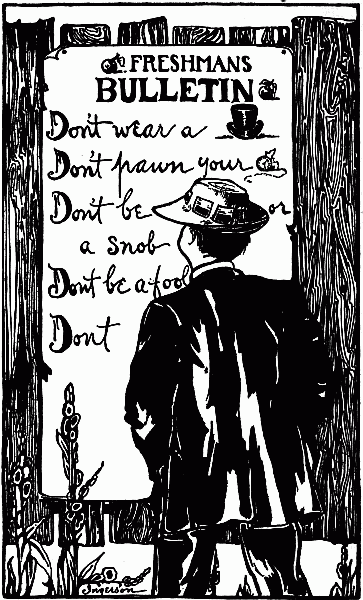 FRESHMANS
BULLETIN
Don't wear a
Don't pawn your
Don't be or
a snob
Dont be a fool
Dont
Ingerson